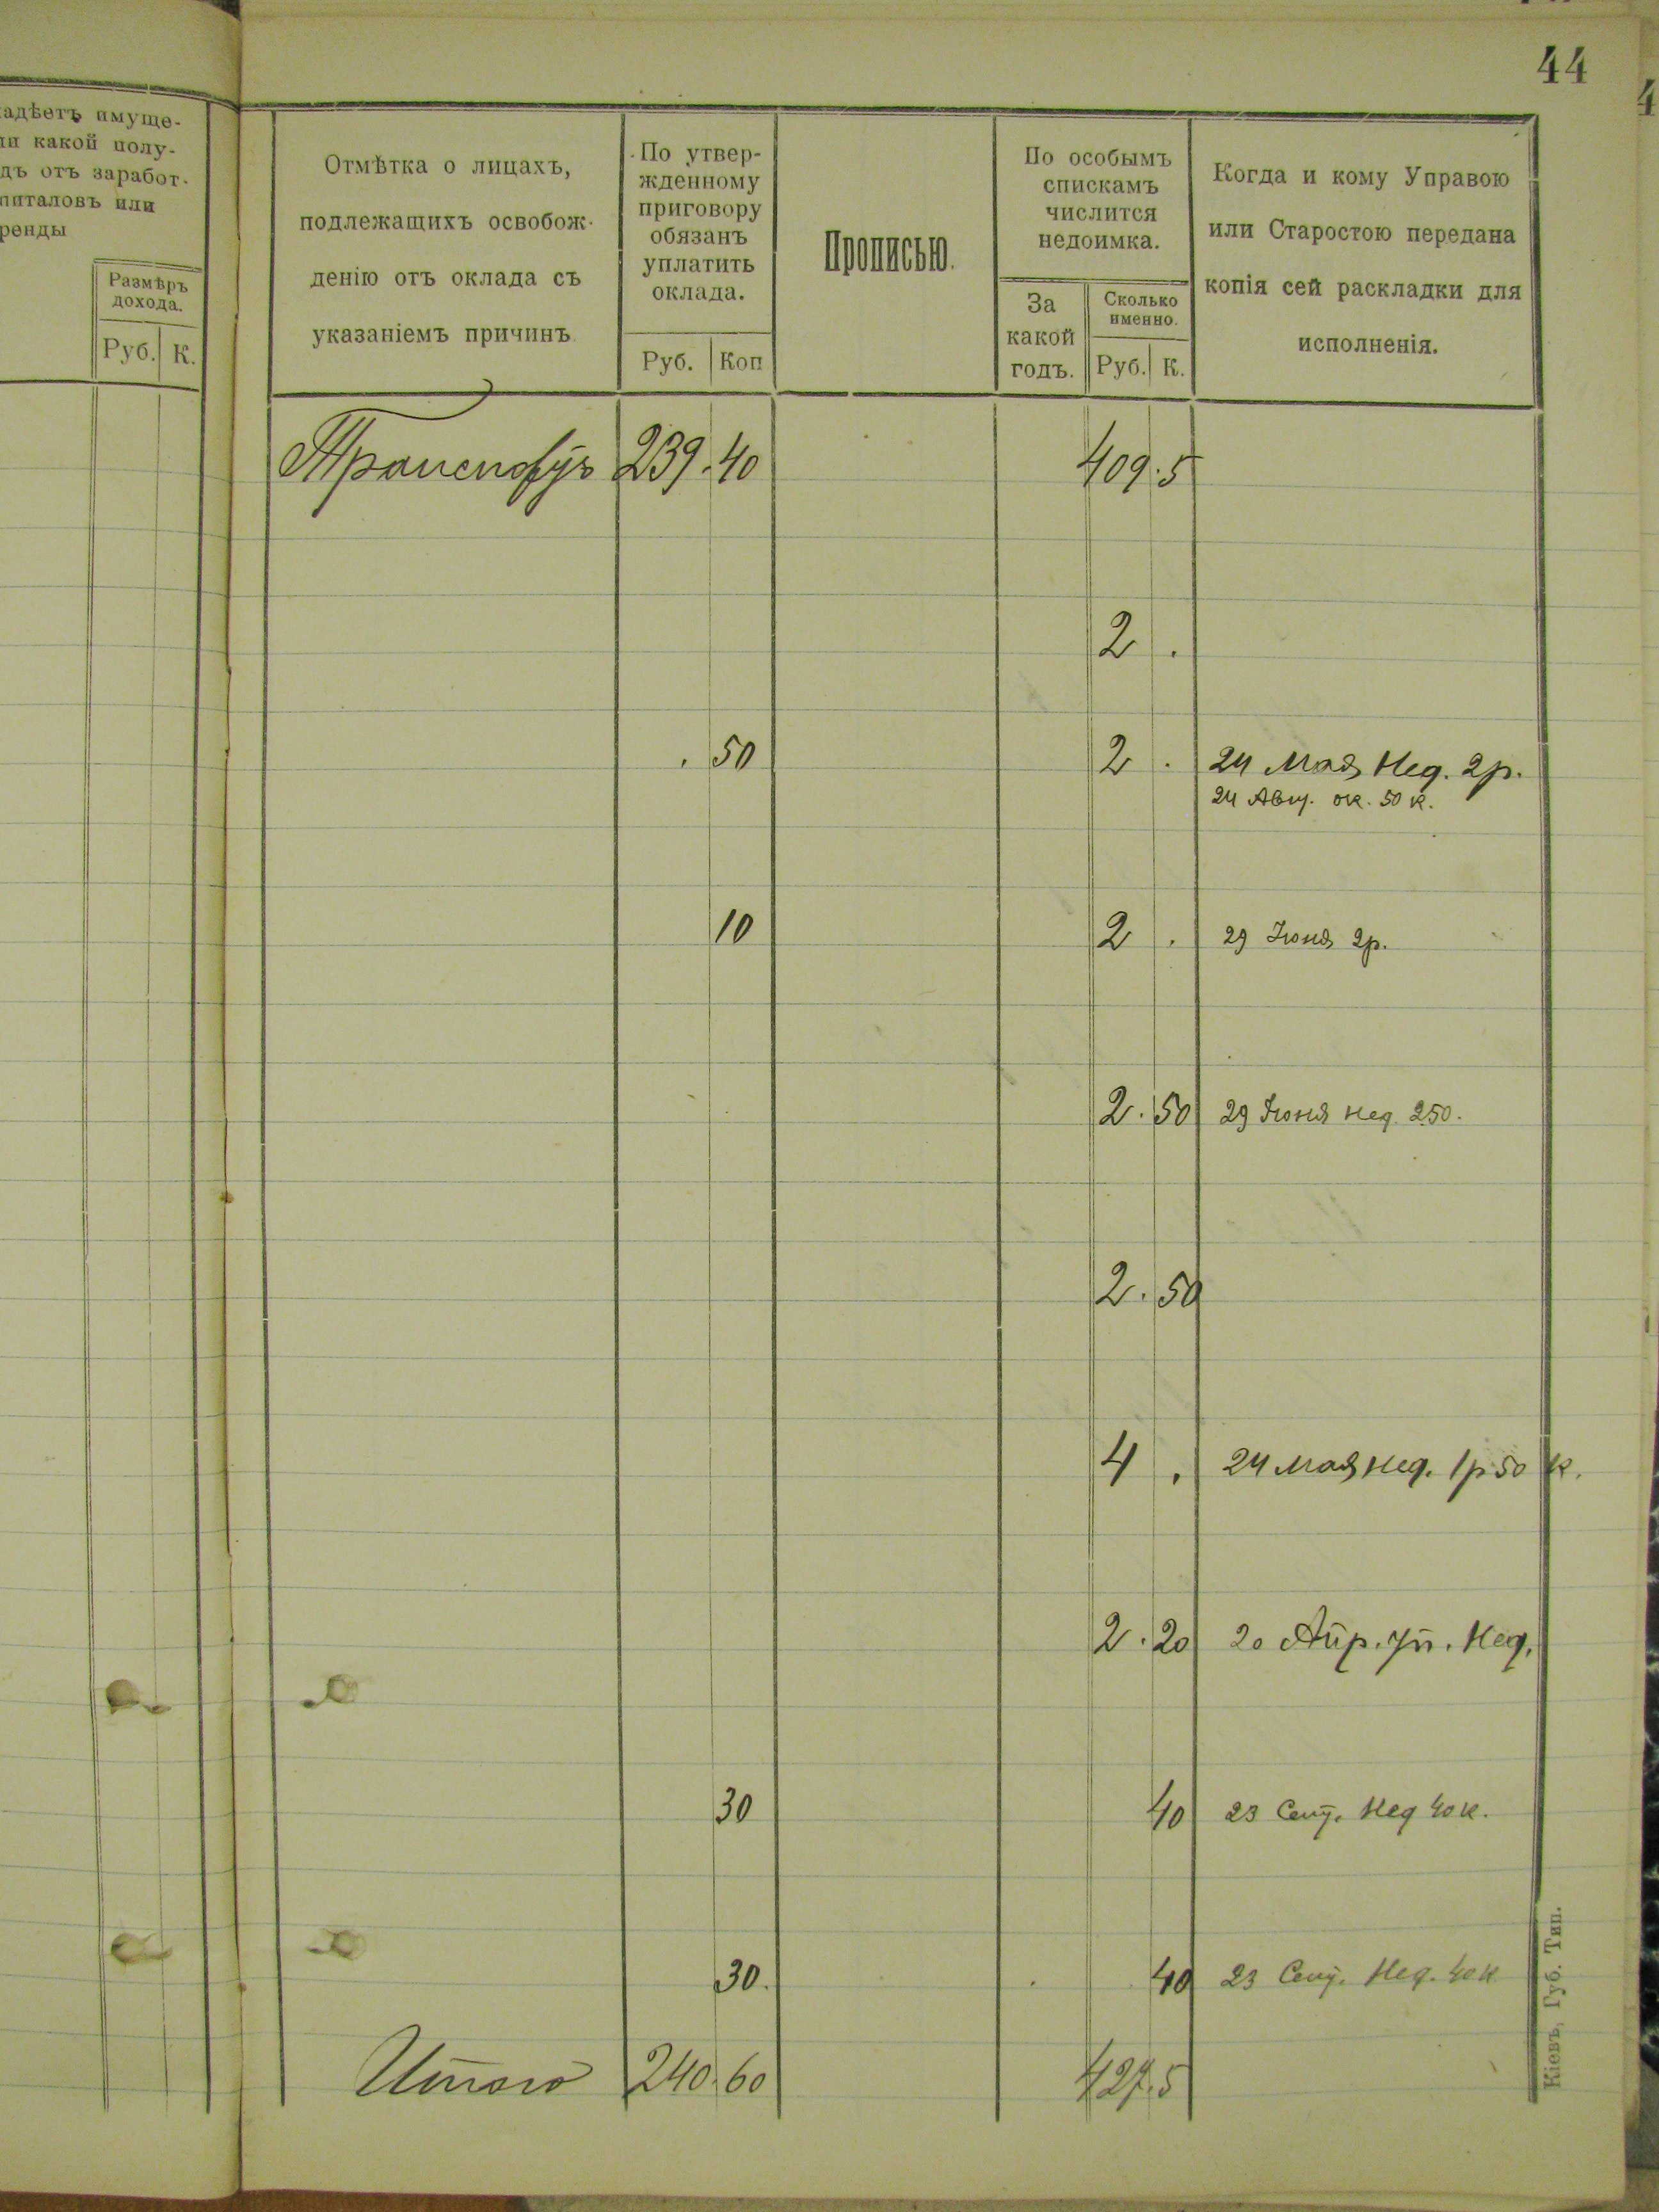 44
4
адѣетъ имуще-
ли какой полу-
дъ отъ заработ-
питаловъ или
ренды
Размѣръ
дохода.
Руб. К.
Отмѣтка о лицахъ,
подлежащихъ освобож-
денію отъ оклада съ
указаніемъ причинъ
По утвер-
жденному
приговору
обязанъ
уплатить
оклада.
Руб. Коп
Прописью.
По особымъ
спискамъ
числится
недоимка.
За
какой
годъ.
Сколько
именно.
Руб. К.
Когда и кому Управою
или Старостою передана
копія сей раскладки для
исполненія.
Транспортъ 239. 40 409. 5
2 .
. 50 2 . 24 Мая Нед. 2р.
24 Авгу. ок. 50 к.
10 2 . 29 Іюня 2р.
2. 50 29 Іюня нед. 250.
2. 50
4 . 24 Мая нед. 1р 50 к.
2. 20 20 Апр. уп. Нед.
30 40 23 Сент. Нед 40к.
30. 40 23 Сент. Нед. 40к
Итого 240. 60 427. 5
Кіевъ, Губ. Тип.